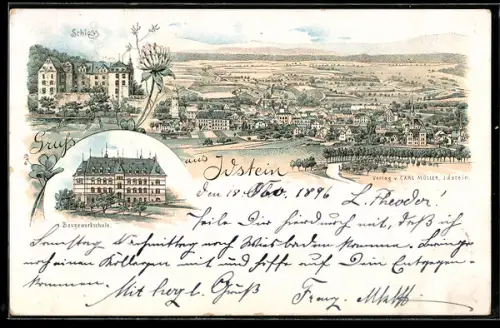 Schloß
Gruß
aus Idstein
Verlag v. CARL MÜLLER, Idstein.
Baugewerkschule.
den 18 1896
L. Theodor!
Teile Dir hierdurch mit, daß ich
Samstag Vormittag nach Wiesbaden komme. Bringe
noch einen Kollegen mit und hoffe auf Dein Entgegen-
kommen. Mit herzl. Gruß Franz